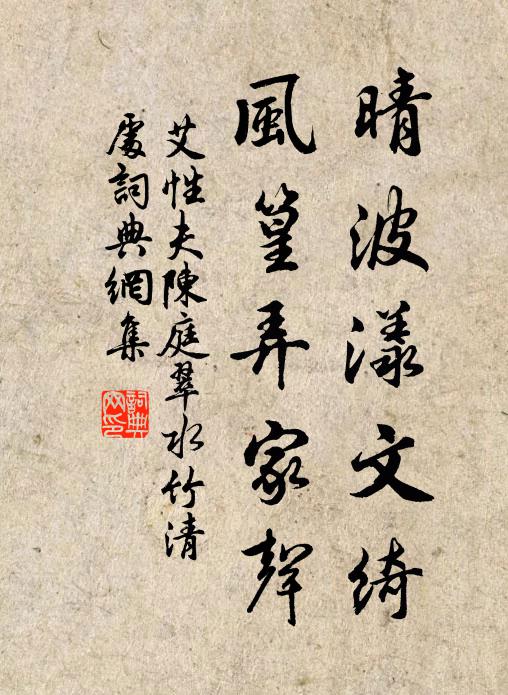 晴波漾文綺
風篁弄家聲
艾性夫陳庭翠水竹清
處詞典網集
詞典網印